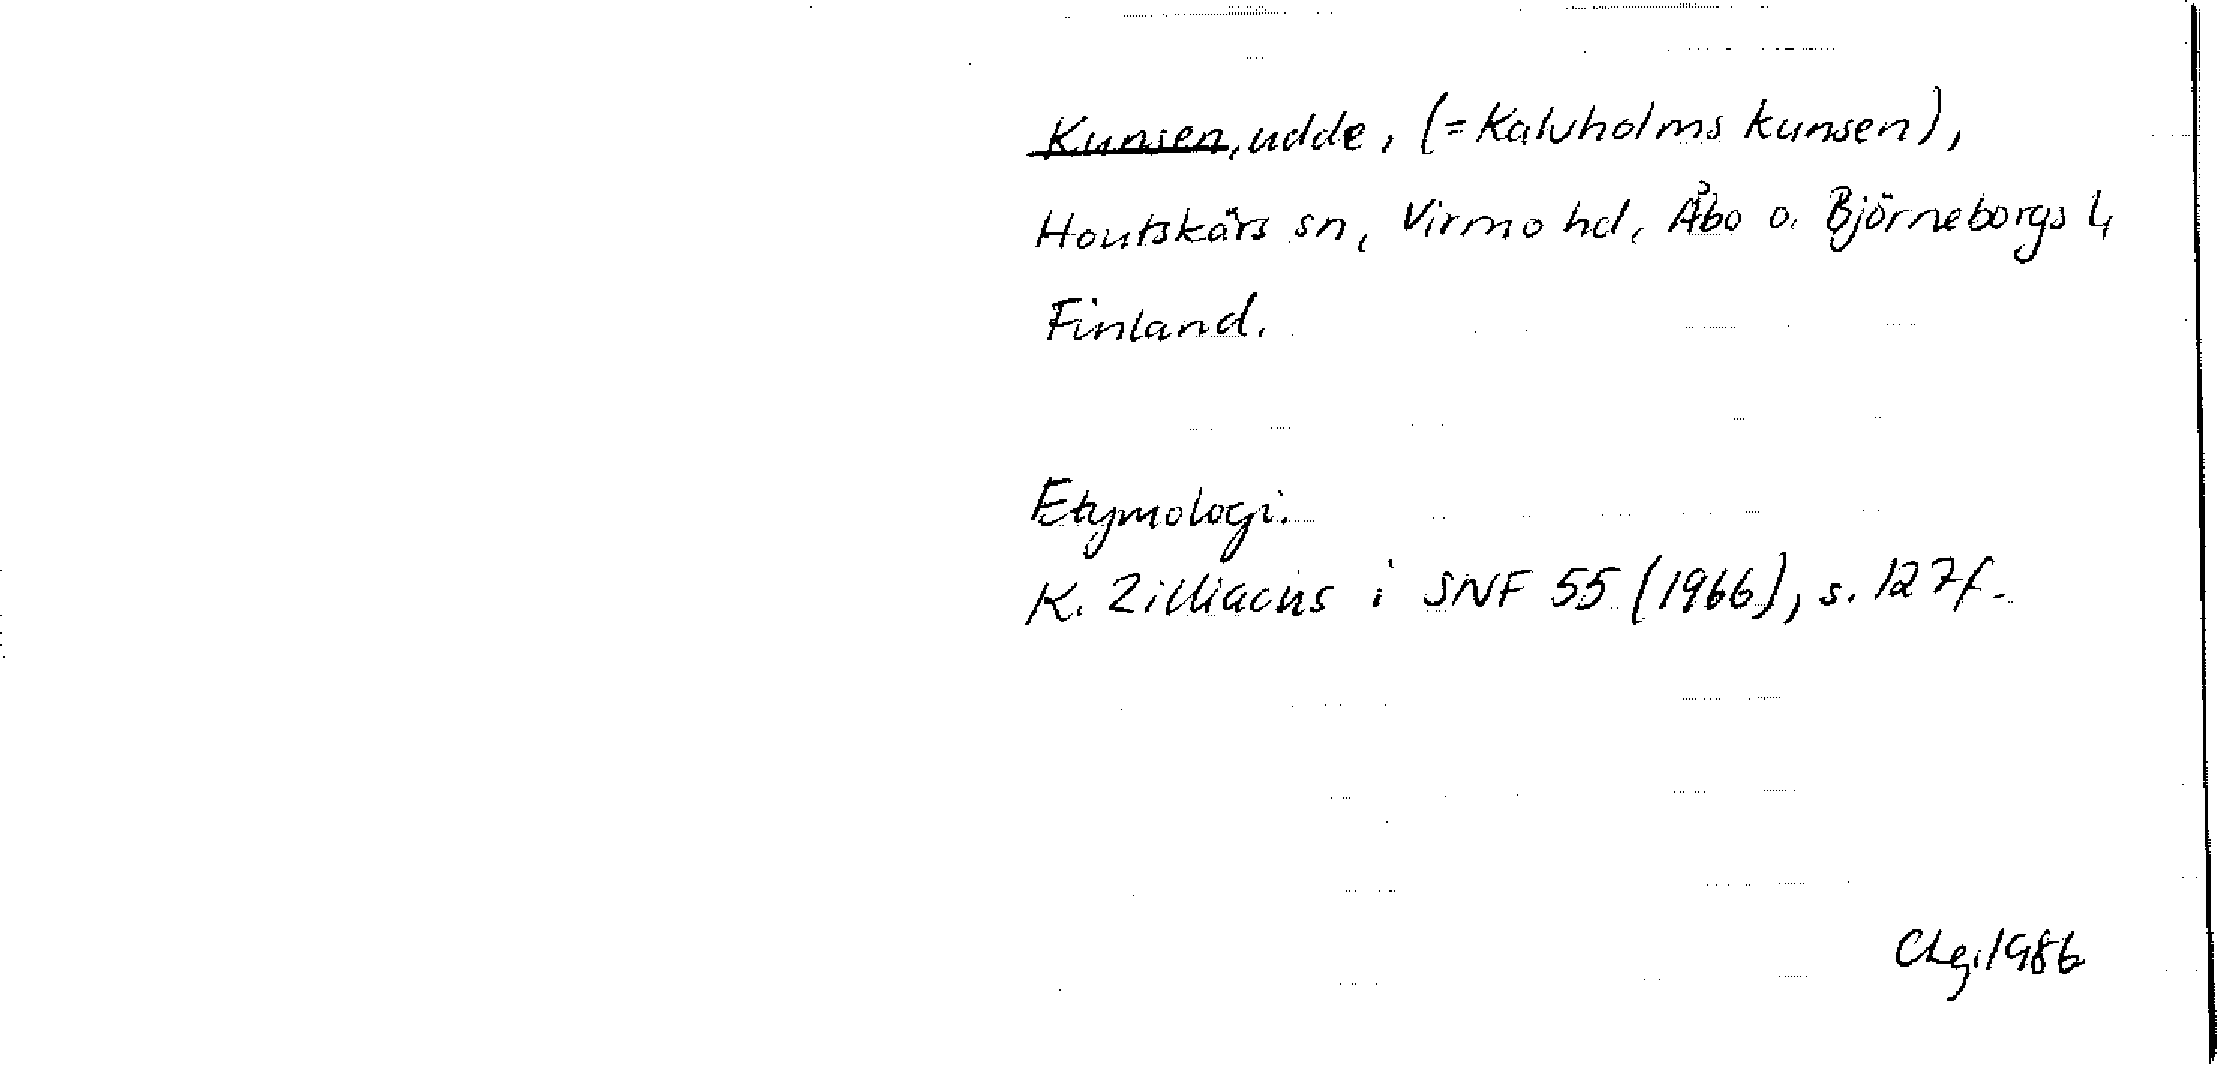 Kunsen, udde, (= Kalvholms kunsen),
Houtskärs sn, Virmo hd, Åbo o. Björneborgs l,
Finland.
Etymologi.
K. Zilliacus i SNF 55 (1966), s. 127f.
1986